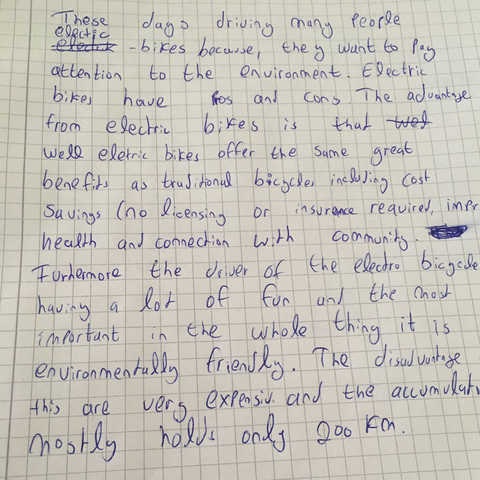 These days driving many people
electic
electrik - bikes because, they want to pay
attention to the environment. Electric
bikes have Pros and cons. The advantage
from electric bikes is that wel
well eletric bikes offer the same great
benefits as traditional bicycles, including cost
savings (no licensing or insurance required, impr
health and connection with community.
Furhermore the driver of the electro bicycle
having a lot of fun und the most
important in the whole thing it is
environmentally friendly. The disadvantage
this are very expensiv. and the accumulat
mostly holds only 200 km.